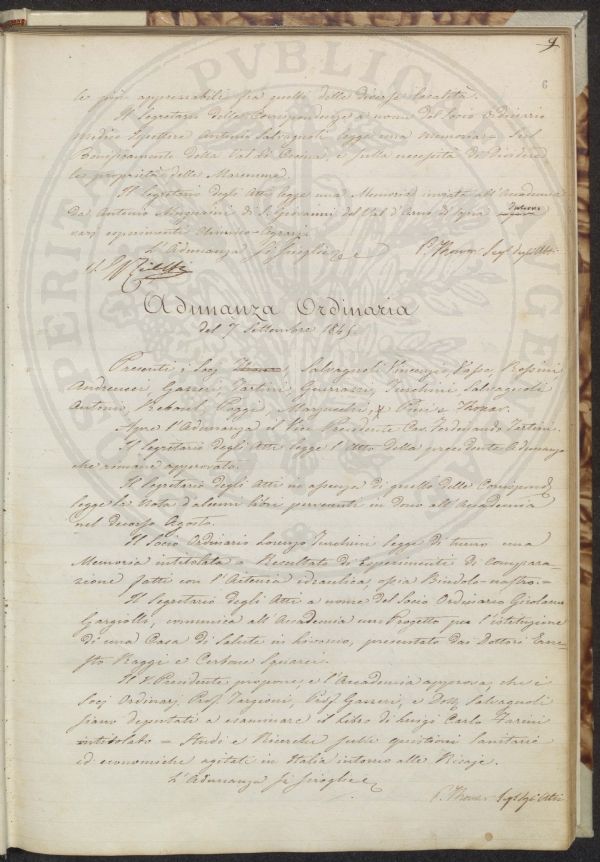 9
6
le più apprezzabili fra quelle delle diverse località.
Il Segretario delle Corrispondenze a nome del Socio Ordinario
medico Ispettore Antonio Salvagnoli legge una Memoria sul
bonificamento della Val di Cecina, e sulla necessità di dividere
le proprietà della Maremma.
Il Segretario degli Atti legge una Memoria inviata all'Accademia
da Antonio di S. Giovanni del Val d'Arno di sopra intorno
varj esperimenti Chimico-Agrarj.
L'Adunanza si scioglie
P. Thouar Seg. degli Atti
Adunanza Ordinaria
del 7 Settembre 1845
Presenti i Socj Thouar, Salvagnoli Vincenzo, Rossini
Andreucci Gazzeri, Tartini, Guerrazzi, Turchini, Salvagnoli
Antonio, Reboul, Poggi, e Thouar.
Apre l'Adunanza il Vice Presidente Cav. Ferdinando Tartini
Il Segretario degli Atti legge l'Atto della precedente Adunanza
che rimane approvato.
Il Segretario degli Atti in assenza di quello delle Corrispond.e
legge la nota d'alcuni libri pervenuti in dono all'Accademia
nel decorso Agosto.
Il Socio Ordinario Lorenzo Turchini legge di turno una
Memoria intitolata = Resultato di Esperimenti di compara-
zione fatti con l'Arteria idraulica, ossia Bindolo-nastro. =
Il Segretario degli Atti a nome del Socio Ordinario Girolamo
Gargiolli, comunica all'Accademia un Progetto per l'istituzione
di una Casa di Salute in Livorno, presentato dai Dottori Erne-
sto Raggi e Cerbone Squarci.
Il V. Presidente propone, e l'Accademia approva, che i
Socj Ordinarj, Prof. Targioni, Prof. Gazzeri, e Dott. Salvagnoli
siano deputati a esaminare il Libro di Luigi Carlo Farini
intitolato = Studi e Ricerche sulle questioni Sanitarie
ed economiche agitate in Italia intorno alle Risaje.
L'Adunanza si scioglie
P. Thouar Seg. degli Atti